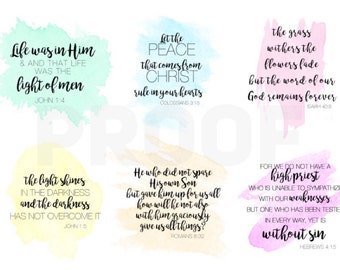 Life was in Him
& AND THAT LIFE
WAS THE
light of men
JOHN 1:4
Let the
PEACE
that comes from
CHRIST
rule in your hearts
COLOSSIANS 3:15
the grass
withers the
flowers fade
but the word of our
God remains forever
ISAIAH 40:8
the light shines
IN THE DARKNESS
and the darkness
HAS NOT OVERCOME IT
JOHN 1:5
He who did not spare
His own Son
but gave him up for us all
how will he not also
with him graciously
give us all things?
ROMANS 8:32
FOR WE DO NOT HAVE A
high priest
WHO IS UNABLE TO SYMPATHIZE
WITH OUR weaknesses
BUT ONE WHO HAS BEEN TESTED
IN EVERY WAY, YET IS
without sin
HEBREWS 4:15
PROOF